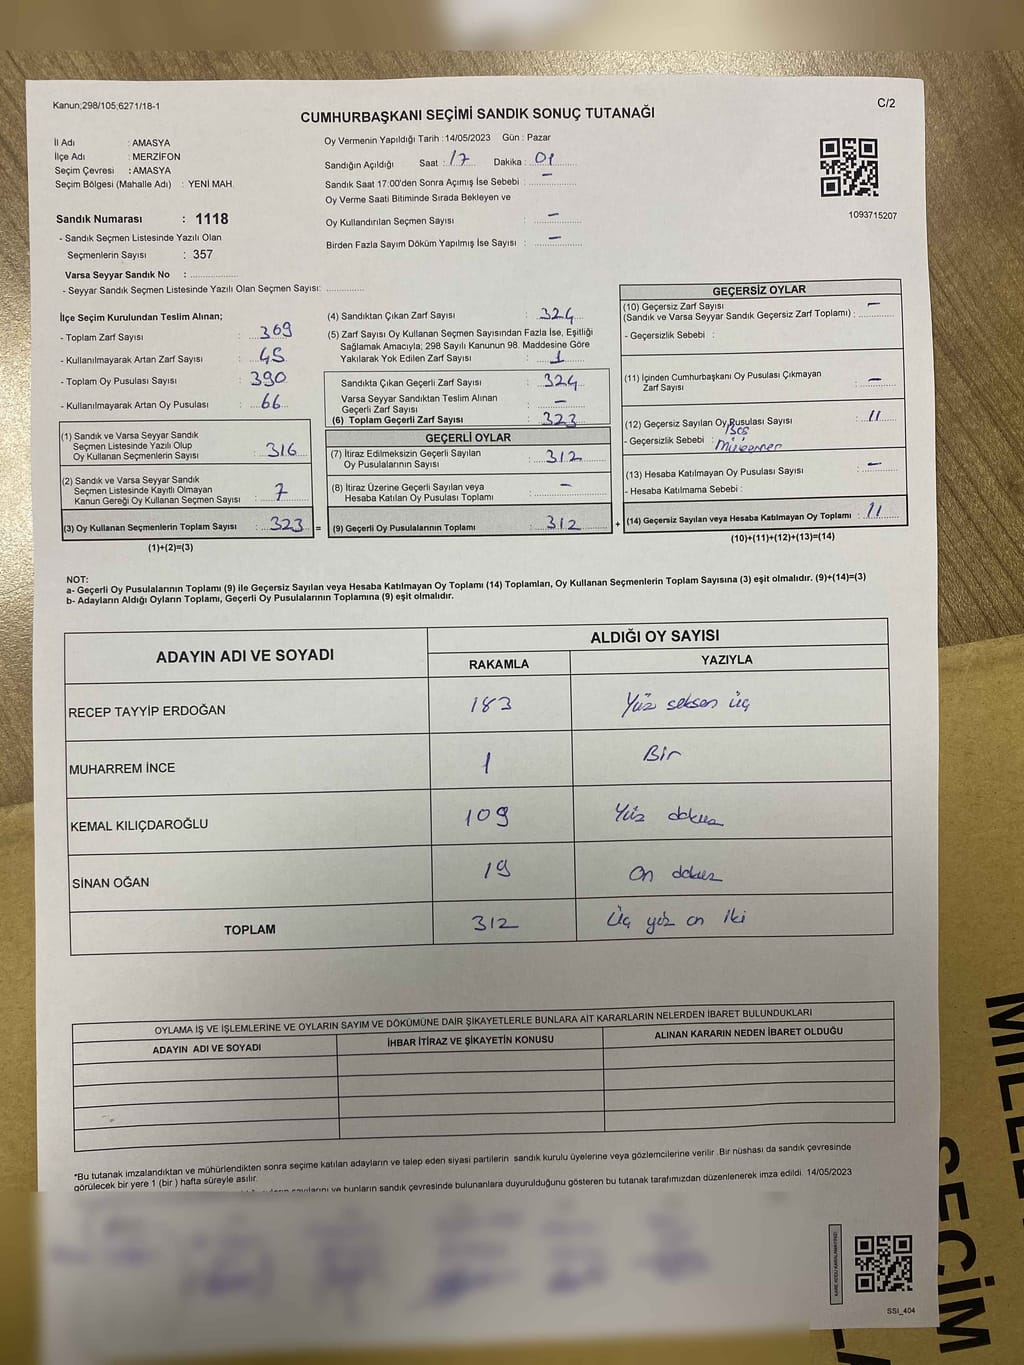 Kanun;298/105;6271/18-1
C/2
CUMHURBAŞKANI SEÇİMİ SANDIK SONUÇ TUTANAĞI
İl Adı : AMASYA
İlçe Adı : MERZİFON
Seçim Çevresi : AMASYA
Seçim Bölgesi (Mahalle Adı) : YENİ MAH.
Oy Vermenin Yapıldığı Tarih :14/05/2023 Gün : Pazar
Sandığın Açıldığı Saat : 17 Dakika : 01
Sandık Saat 17:00'den Sonra Açımış İse Sebebi : –
Oy Verme Saati Bitiminde Sırada Bekleyen ve
Oy Kullandırılan Seçmen Sayısı : –
Birden Fazla Sayım Döküm Yapılmış İse Sayısı : –
1093715207
Sandık Numarası : 1118
- Sandık Seçmen Listesinde Yazılı Olan
Seçmenlerin Sayısı : 357
Varsa Seyyar Sandık No :
- Seyyar Sandık Seçmen Listesinde Yazılı Olan Seçmen Sayısı:
İlçe Seçim Kurulundan Teslim Alınan;
- Toplam Zarf Sayısı : 369
- Kullanılmayarak Artan Zarf Sayısı : 45
- Toplam Oy Pusulası Sayısı : 390
- Kullanılmayarak Artan Oy Pusulası : 66
(1) Sandık ve Varsa Seyyar Sandık
Seçmen Listesinde Yazılı Olup
Oy Kullanan Seçmenlerin Sayısı : 316
(2) Sandık ve Varsa Seyyar Sandık
Seçmen Listesinde Kayıtlı Olmayan
Kanun Gereği Oy Kullanan Seçmen Sayısı : 7
(3) Oy Kullanan Seçmenlerin Toplam Sayısı : 323 =
(1)+(2)=(3)
(4) Sandıktan Çıkan Zarf Sayısı : 324
(5) Zarf Sayısı Oy Kullanan Seçmen Sayısından Fazla İse, Eşitliği
Sağlamak Amacıyla; 298 Sayılı Kanunun 98. Maddesine Göre
Yakılarak Yok Edilen Zarf Sayısı : 1
Sandıkta Çıkan Geçerli Zarf Sayısı : 324
Varsa Seyyar Sandıktan Teslim Alınan
Geçerli Zarf Sayısı : –
(6) Toplam Geçerli Zarf Sayısı : 323
GEÇERLİ OYLAR
(7) İtiraz Edilmeksizin Geçerli Sayılan
Oy Pusulalarının Sayısı : 312
(8) İtiraz Üzerine Geçerli Sayılan veya
Hesaba Katılan Oy Pusulası Toplamı : –
(9) Geçerli Oy Pusulalarının Toplamı : 312 +
GEÇERSİZ OYLAR
(10) Geçersiz Zarf Sayısı
(Sandık ve Varsa Seyyar Sandık Geçersiz Zarf Toplamı) : –
- Geçersizlik Sebebi :
(11) İçinden Cumhurbaşkanı Oy Pusulası Çıkmayan
Zarf Sayısı : –
(12) Geçersiz Sayılan Oy Pusulası Sayısı : 11
- Geçersizlik Sebebi :
(13) Hesaba Katılmayan Oy Pusulası Sayısı : –
- Hesaba Katılmama Sebebi :
(14) Geçersiz Sayılan veya Hesaba Katılmayan Oy Toplamı : 11
(10)+(11)+(12)+(13)=(14)
NOT:
a- Geçerli Oy Pusulalarının Toplamı (9) ile Geçersiz Sayılan veya Hesaba Katılmayan Oy Toplamı (14) Toplamları, Oy Kullanan Seçmenlerin Toplam Sayısına (3) eşit olmalıdır. (9)+(14)=(3)
b- Adayların Aldığı Oyların Toplamı, Geçerli Oy Pusulalarının Toplamına (9) eşit olmalıdır.
ADAYIN ADI VE SOYADI
ALDIĞI OY SAYISI
RAKAMLA YAZIYLA
RECEP TAYYİP ERDOĞAN 183 Yüz seksen üç
MUHARREM İNCE 1 Bir
KEMAL KILIÇDAROĞLU 109 Yüz dokuz
SİNAN OĞAN 19 On dokuz
TOPLAM 312 Üç yüz on iki
OYLAMA İŞ VE İŞLEMLERİNE VE OYLARIN SAYIM VE DÖKÜMÜNE DAİR ŞİKAYETLERLE BUNLARA AİT KARARLARIN NELERDEN İBARET BULUNDUKLARI
ADAYIN ADI VE SOYADI İHBAR İTİRAZ VE ŞİKAYETİN KONUSU ALINAN KARARIN NEDEN İBARET OLDUĞU
*Bu tutanak imzalandıktan ve mühürlendikten sonra seçime katılan adayların ve talep eden siyasi partilerin sandık kurulu üyelerine veya gözlemcilerine verilir .Bir nüshası da sandık çevresinde
görülecek bir yere 1 (bir ) hafta süreyle asılır.
ve bunların sandık çevresinde bulunanlara duyurulduğunu gösteren bu tutanak tarafımızdan düzenlenerek imza edildi. 14/05/2023
SSI_404
SEÇİM